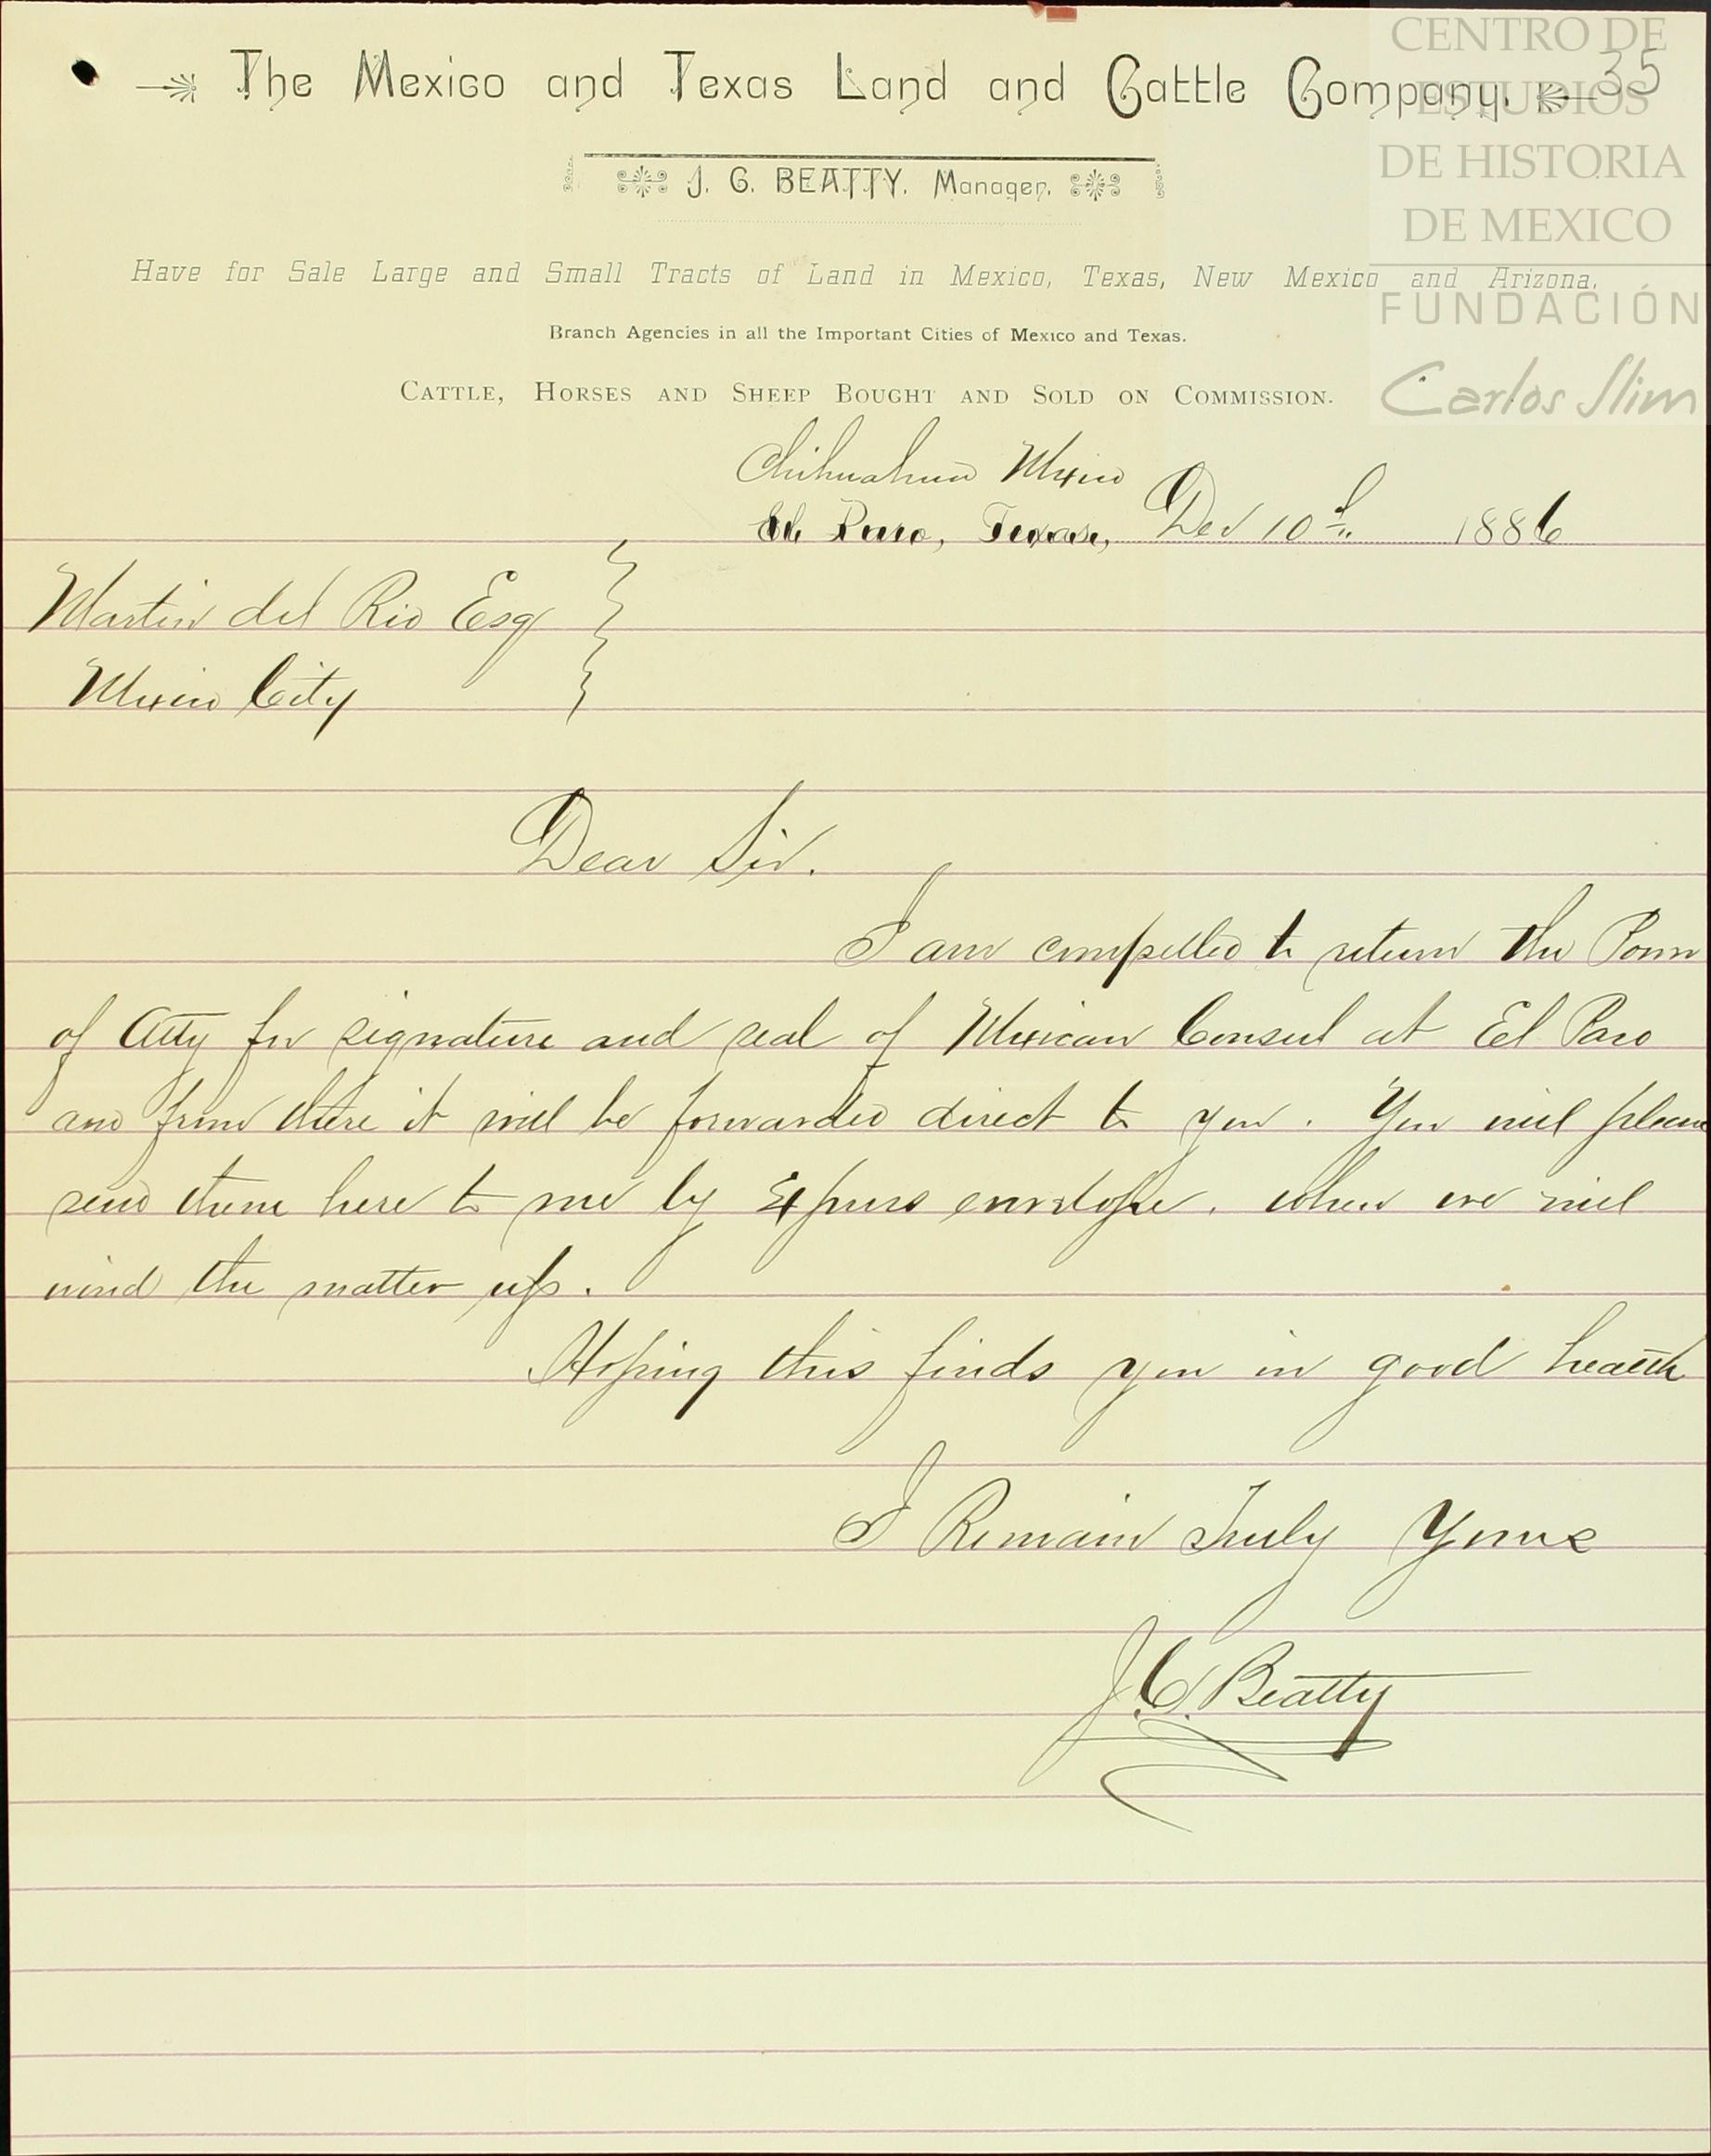 The Mexico and Texas Land and Cattle Company.
35
J. C. BEATTY. Manager.
Have for Sale Large and Small Tracts of Land in Mexico, Texas, New Mexico and Arizona.
Branch Agencies in all the Important Cities of Mexico and Texas.
CATTLE, HORSES AND SHEEP BOUGHT AND SOLD ON COMMISSION.
CENTRO DE
ESTUDIOS
DE HISTORIA
DE MEXICO
FUNDACIÓN
Carlos Slim
Chihuahua Mexico
El Paso, Texas, Dec 10th 1886
Martin del Rio Esq
Mexico City
Dear Sir.
I am compelled to return the Power
of Atty for signature and seal of Mexican Consul at El Paso
and from there it will be forwarded direct to you. You will please
send them here to me by Express envelope. when we will
wind the matter up.
Hoping this finds you in good health
I Remain Truly Yours
J. C. Beatty